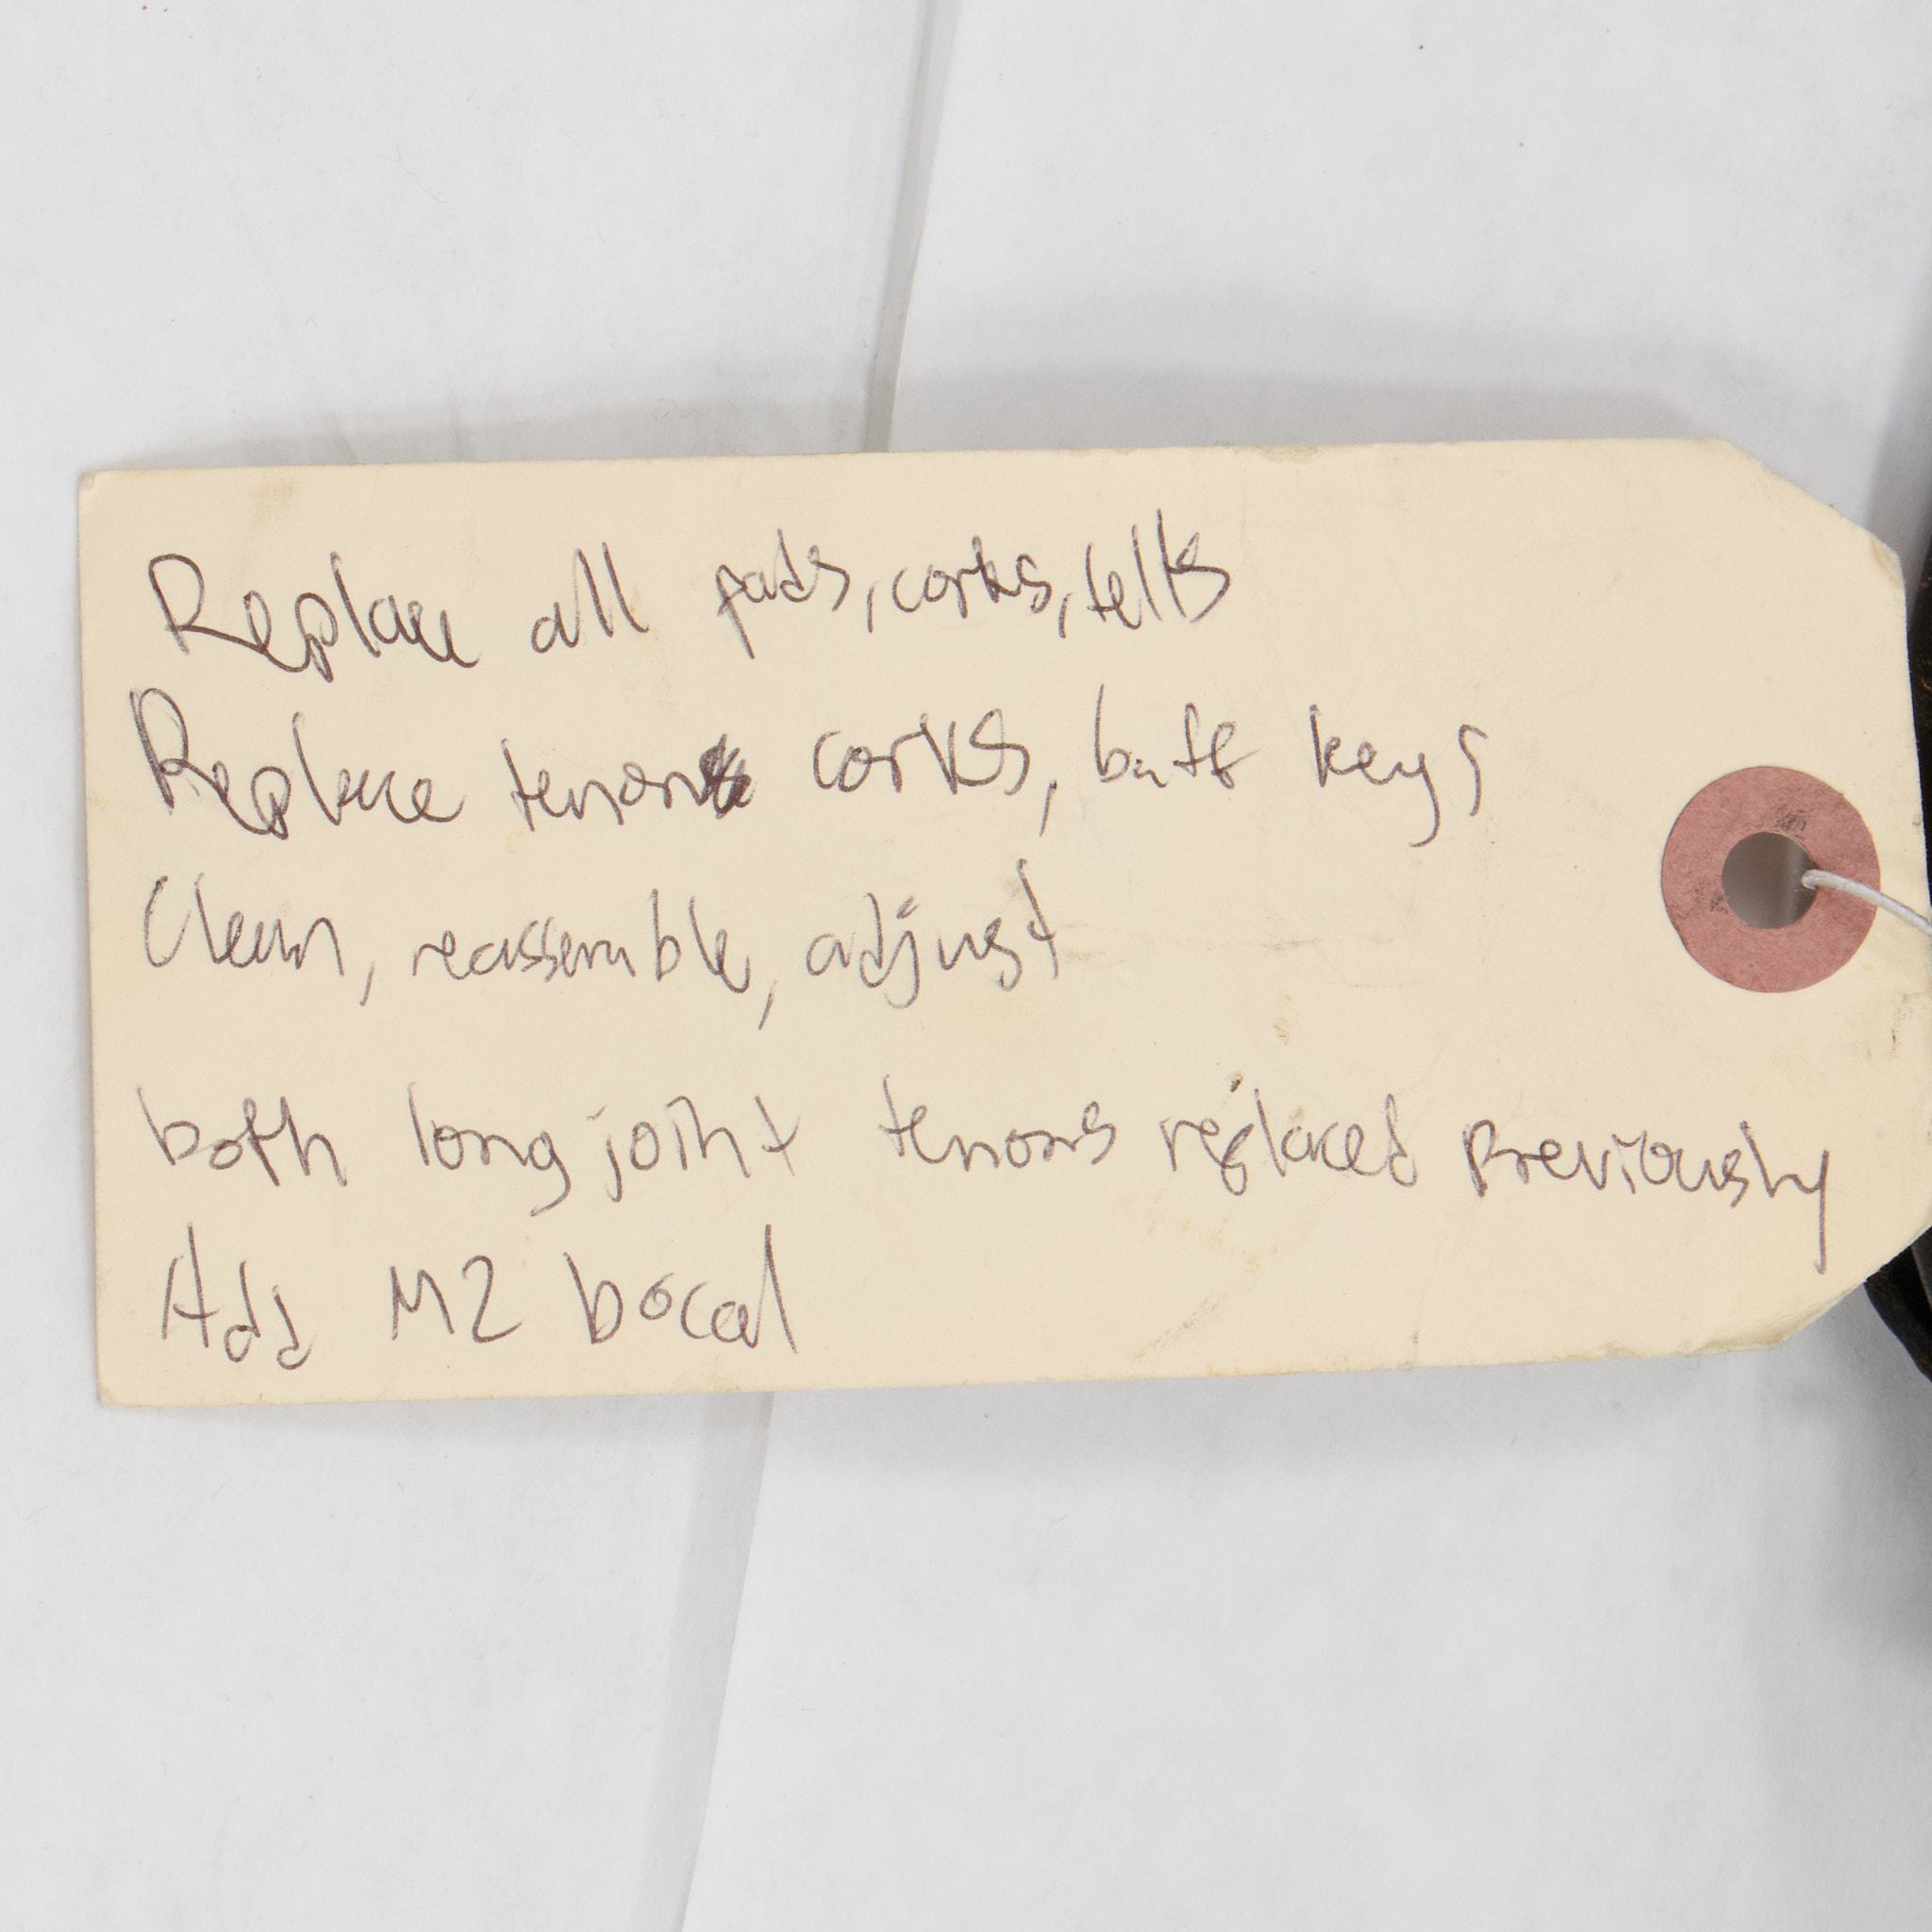 Replace all pads, corks, felts
Replace tenon corks, buff keys
Clean, reassemble, adjust
both long joint tenons replaced previously
Add M2 bocal